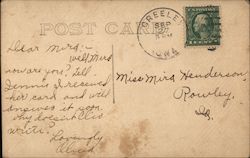 POST CARD
GREELEY
SEP
27
8 AM
IOWA
Dear Mira:-
well Mira
how are you? Tell
Jennie I received
her card and will
answer it soon
why doesn't
write.
Lovingly
Miss Mira Henderson,
Rowley,
Ia.